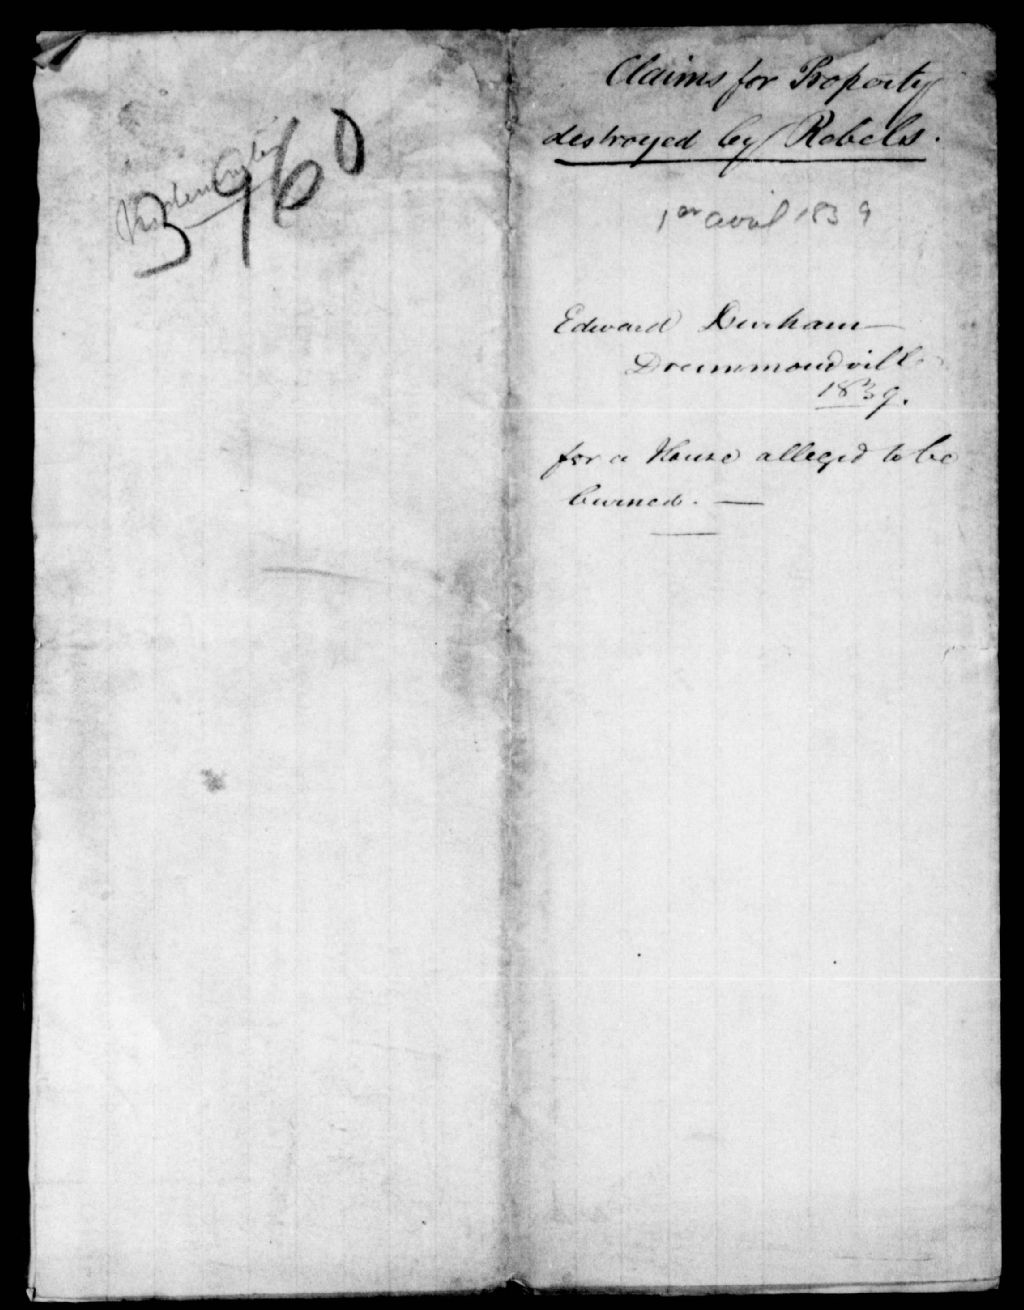 3960
Claims for Property
destroyed by Rebels.
1er avril 1839
Edward Durham
Drummondville
1839.
for a House alleged to be
burned. —